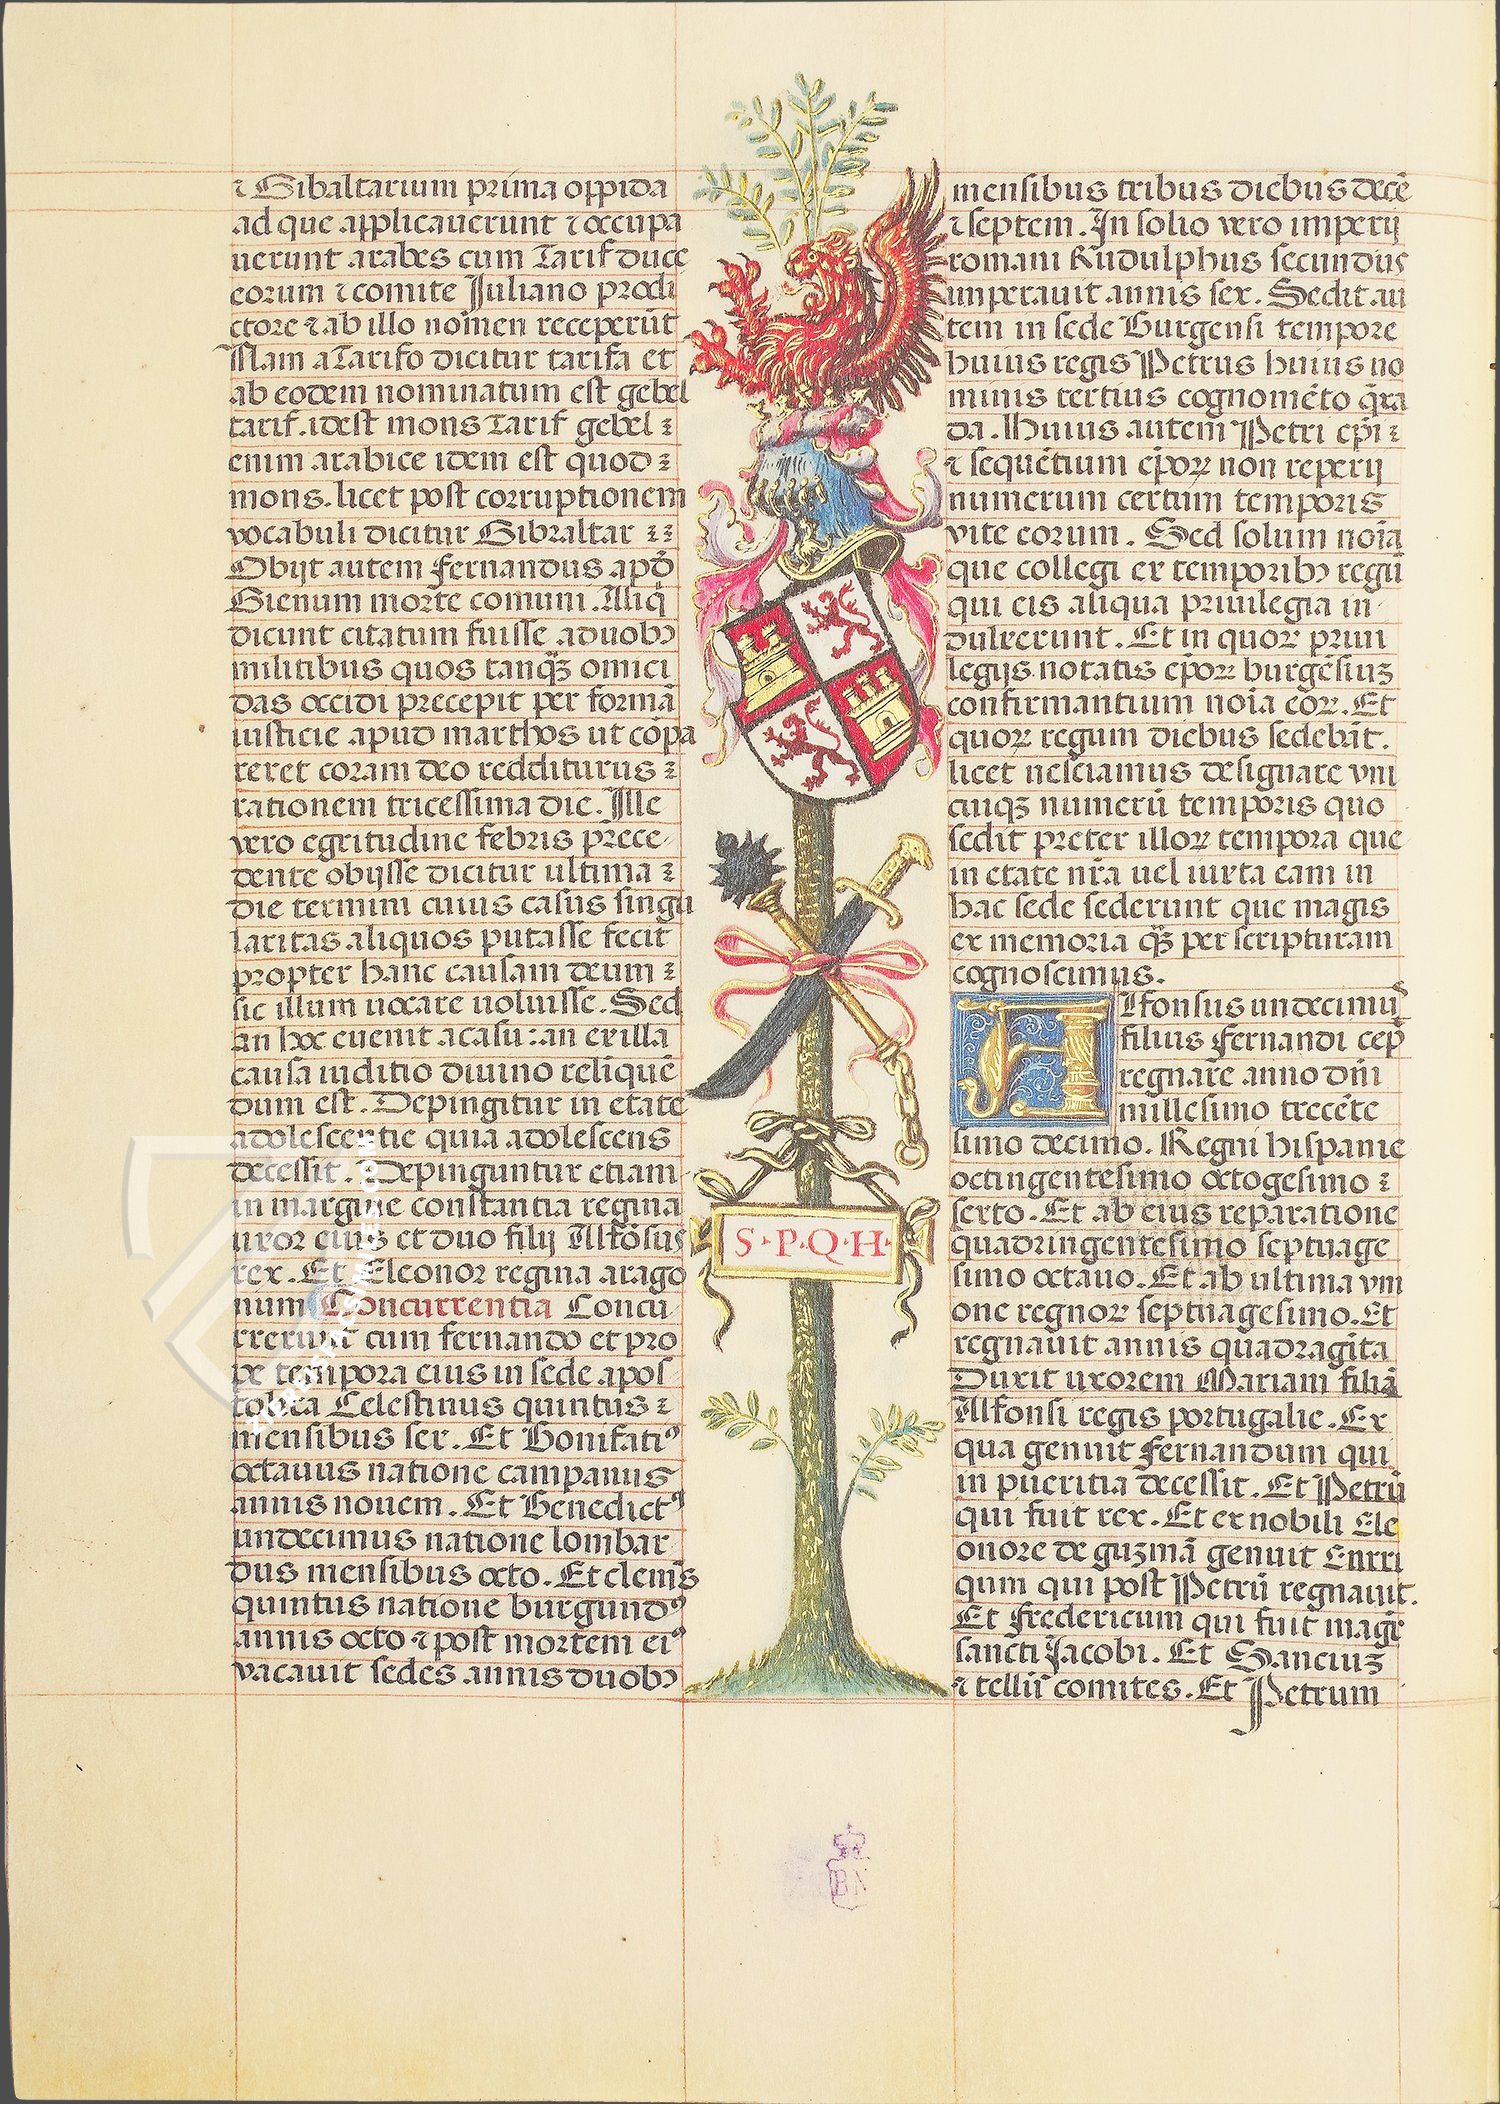 ⁊ Gibaltarium prima oppida
ad que applicauerunt ⁊ occupa
uerunt arabes cum Tarif duce
eorum ⁊ comite Juliano prodi
ctore ⁊ ab illo nomen receperūt
Nam a Tarifo dicitur tarifa et
ab eodem nominatum est gebel
tarif. idest mons Tarif gebel
enim arabice idem est quod
mons. licet post corruptionem
vocabuli dicitur Gibraltar
Obijt autem fernandus apd̄
Gienum morte comuni. Aliq̄
dicunt citatum fuisse a duob9
militibus quos tanqȝ omici
das occidi precepit per formā
iusticie apud marthos ut cōpa
reret coram deo redditurus
rationem tricessima die. Ille
vero egritudine febris prece
dente obijsse dicitur ultima
die termini cuius casus singu
laritas aliquos putasse fecit
propter hanc causam deum
sic illum uocare uoluisse. Sed
an hoc euenit a casu: an ex illa
causa iuditio diuino reliquē
dum est. Depingitur in etate
adolescentie quia adolescens
decessit. Depinguntur etiam
in margine constantia regina
uxor eius et duo filij Alfōsus
rex. Et Eleonor regina arago
num Concurrentia Concu
rrerunt cum fernando et pro
pe tempora eius in sede apos
tolica Celestinus quintus
mensibus sex. Et Bonifati9
octauus natione campanus
annis nouem. Et Benedict9
undecimus natione lombar
dus mensibus octo. Et clemēs
quintus natione burgund9
annis octo ⁊ post mortem ei9
vacauit sedes annis duob9
S·P·Q·H·
mensibus tribus diebus decē
⁊ septem. In solio vero imperij
romani Rudulphus secundus
imperauit annis sex. Sedit au
tem in sede Burgensi tempore
huius regis Petrus huius no
minis tertius cognomēto q̄xa
da. Huius autem Petri ep̄i
⁊ sequētium ep̄oꝝ non reperij
numerum certum temporis
vite eorum. Sed solum noīa
que collegi ex temporib9 regū
qui eis aliqua priuilegia in
dulxerunt. Et in quoꝝ priui
legijs notatis ep̄oꝝ burgēsiuȝ
confirmantium noīa eoꝝ. Et
quoꝝ regum diebus sedebāt.
licet nesciamus designare vni
cuiqȝ numerū temporis quo
sedit preter illoꝝ tempora que
in etate nr̄a uel iuxta eam in
hac sede sederunt que magis
ex memoria qȝ per scripturam
cognoscimus.
Alfonsus undecimus
filius fernandi cep̄
regnare anno dn̄i
millesimo trecēte
simo decimo. Regni hispanie
octingentesimo octogesimo
sexto. Et ab eius reparatione
quadringentesimo septuage
simo octauo. Et ab ultima vni
one regnoꝝ septuagesimo. Et
regnauit annis quadragīta
Duxit uxorem Mariam filiā
Alfonsi regis portugalie. Ex
qua genuit fernandum qui
in pueritia decessit. Et Petrū
qui fuit rex. Et ex nobili Ele
onore de guzmā genuit Enrri
qum qui post Petrū regnauit.
Et Fredericum qui fuit magr̄
sancti Jacobi. Et Sanciuȝ
⁊ tellū comites. Et Petrum
BN